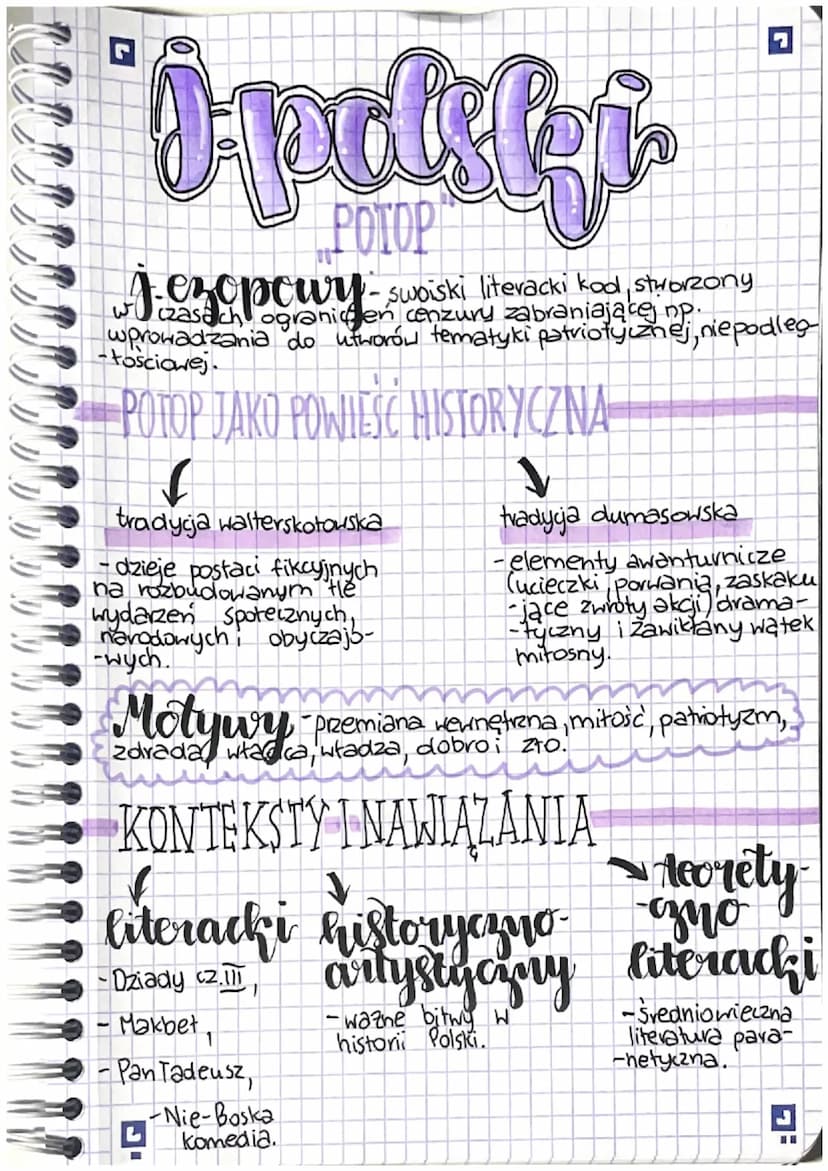 J. polski
„POTOP"
j. ezopowy - swoiski literacki kod, stworzony
w czasach ograniczeń cenzury zabraniającej np.
wprowadzania do utworów tematyki patriotycznej, niepodleg-
-łościowej.
POTOP JAKO POWIEŚĆ HISTORYCZNA
tradycja walterskotowska
- dzieje postaci fikcyjnych
na rozbudowanym tle
wydarzeń społecznych,
narodowych i obyczajo-
-wych.
tradycja dumasowska
- elementy awanturnicze
(ucieczki, porwania, zaskaku
-jące zwroty akcji) drama-
-tyczny i zawikłany wątek
miłosny.
Motywy - przemiana wewnętrzna, miłość, patriotyzm,
zdrada, władca, władza, dobro i zło.
KONTEKSTY I NAWIĄZANIA
literacki
- Dziady cz. III,
- Makbet,
- Pan Tadeusz,
- Nie-Boska
komedia.
historyczno-
artystyczny
- ważne bitwy w
historii Polski.
teorety-
-czno
literacki
- Średniowieczna
literatura para-
-netyczna.